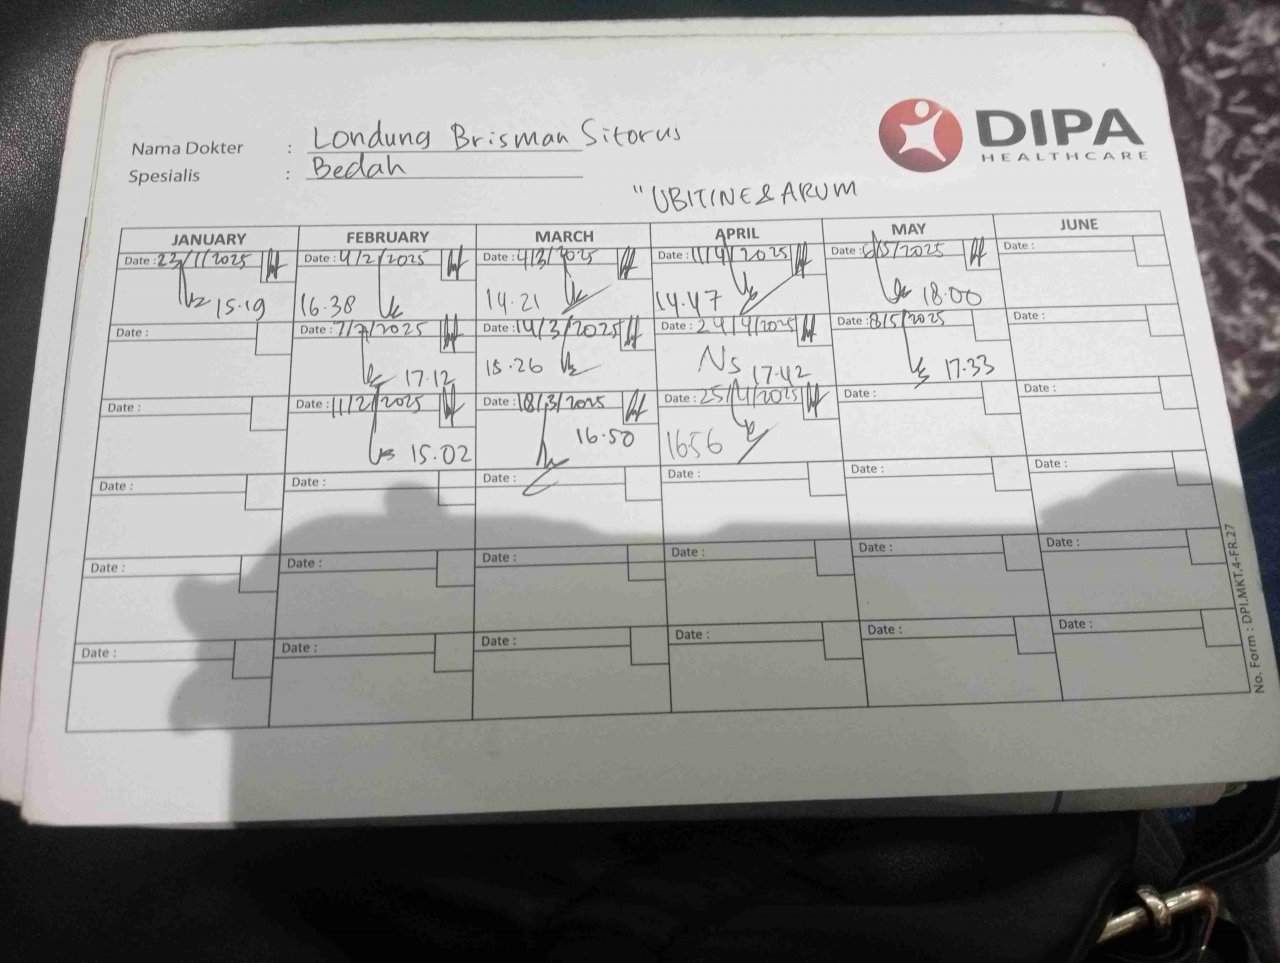 DIPA
HEALTHCARE
Nama Dokter : Londung Brisman Sitorus
Spesialis : Bedah
"UBITINE & ARUM
JANUARY FEBRUARY MARCH APRIL MAY JUNE
Date : 23/1/2025 Date : 4/2/2025 Date : 4/3/2025 Date : 11/4/2025 Date : 6/5/2025 Date :
15.19 16.38 14.21 14.47 18.00
Date : Date : 7/2/2025 Date : 14/3/2025 Date : 24/4/2025 Date : 8/5/2025 Date :
17.12 15.26 Ns 17.42 17.33
Date : Date : 11/2/2025 Date : 18/3/2025 Date : 25/4/2025 Date : Date :
15.02 16.50 16.56
Date : Date : Date : Date : Date : Date :
Date : Date : Date : Date : Date : Date :
Date : Date : Date : Date : Date : Date :
No. Form : DPI.MKT.4-FR.27